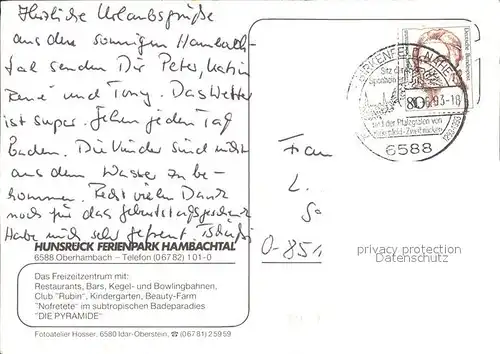 Herzliche Urlaubsgrüße
aus dem sonnigen Hambach-
tal senden Dir Peter, Katrin
René und Tony. Das Wetter
ist super. Gehen jeden Tag
Baden. Die Kinder sind nicht
aus dem Wasser zu be-
kommen. Recht vielen Dank
noch für das Geburtstagsgeschenk
Habe mich sehr gefreut. Tschüß
HUNSRÜCK FERIENPARK HAMBACHTAL
6588 Oberhambach – Telefon (0 67 82) 1 01-0
Das Freizeitzentrum mit:
Restaurants, Bars, Kegel- und Bowlingbahnen,
Club "Rubin", Kindergarten, Beauty-Farm
"Nofretete" im subtropischen Badeparadies
"DIE PYRAMIDE"
Fotoatelier Hosser, 6580 Idar-Oberstein, ☎ (0 67 81) 2 59 59
Deutsche Bundespost
BIRKENFELD, NAHE
Sitz der
Sponheim
80
93-18
und der Pfalzgrafen von
Birkenfeld-Zweibrücken
6588
Frau
L.
So
O-851
privacy protection
Datenschutz